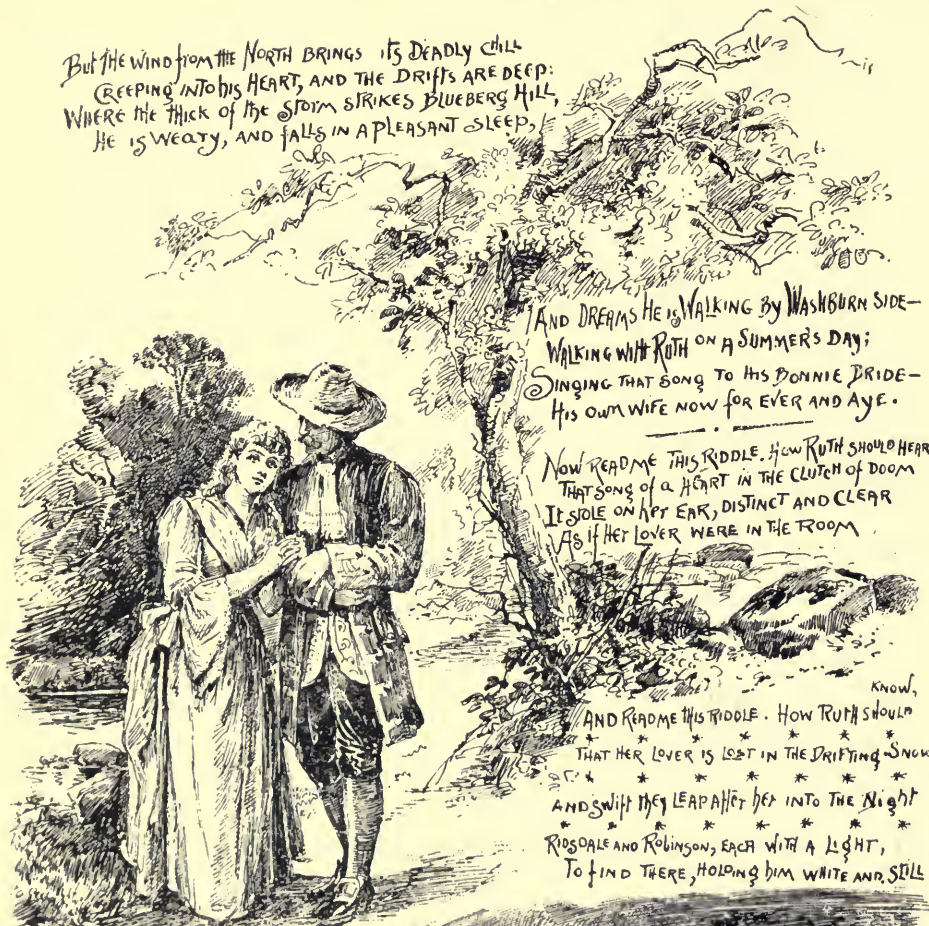 But the wind from the North brings its deadly chill
Creeping into his heart, and the drifts are deep:
Where the thick of the storm strikes Blueberg Hill,
He is weary, and falls in a pleasant sleep,
And dreams he is walking by Washburn side—
Walking with Ruth on a summer's day;
Singing that song to his bonnie bride—
His own wife now for ever and aye.
Now read me this riddle. How Ruth should hear
That song of a heart in the clutch of doom
It stole on her ear, distinct and clear
As if her lover were in the room.
know,
And read me this riddle. How Ruth should
* * * * * * *
That her lover is lost in the drifting snow
* * * * * * *
And swift they leap after her into the night
* * * * * * *
Ridsdale and Robinson, each with a light,
To find there, holding him white and still